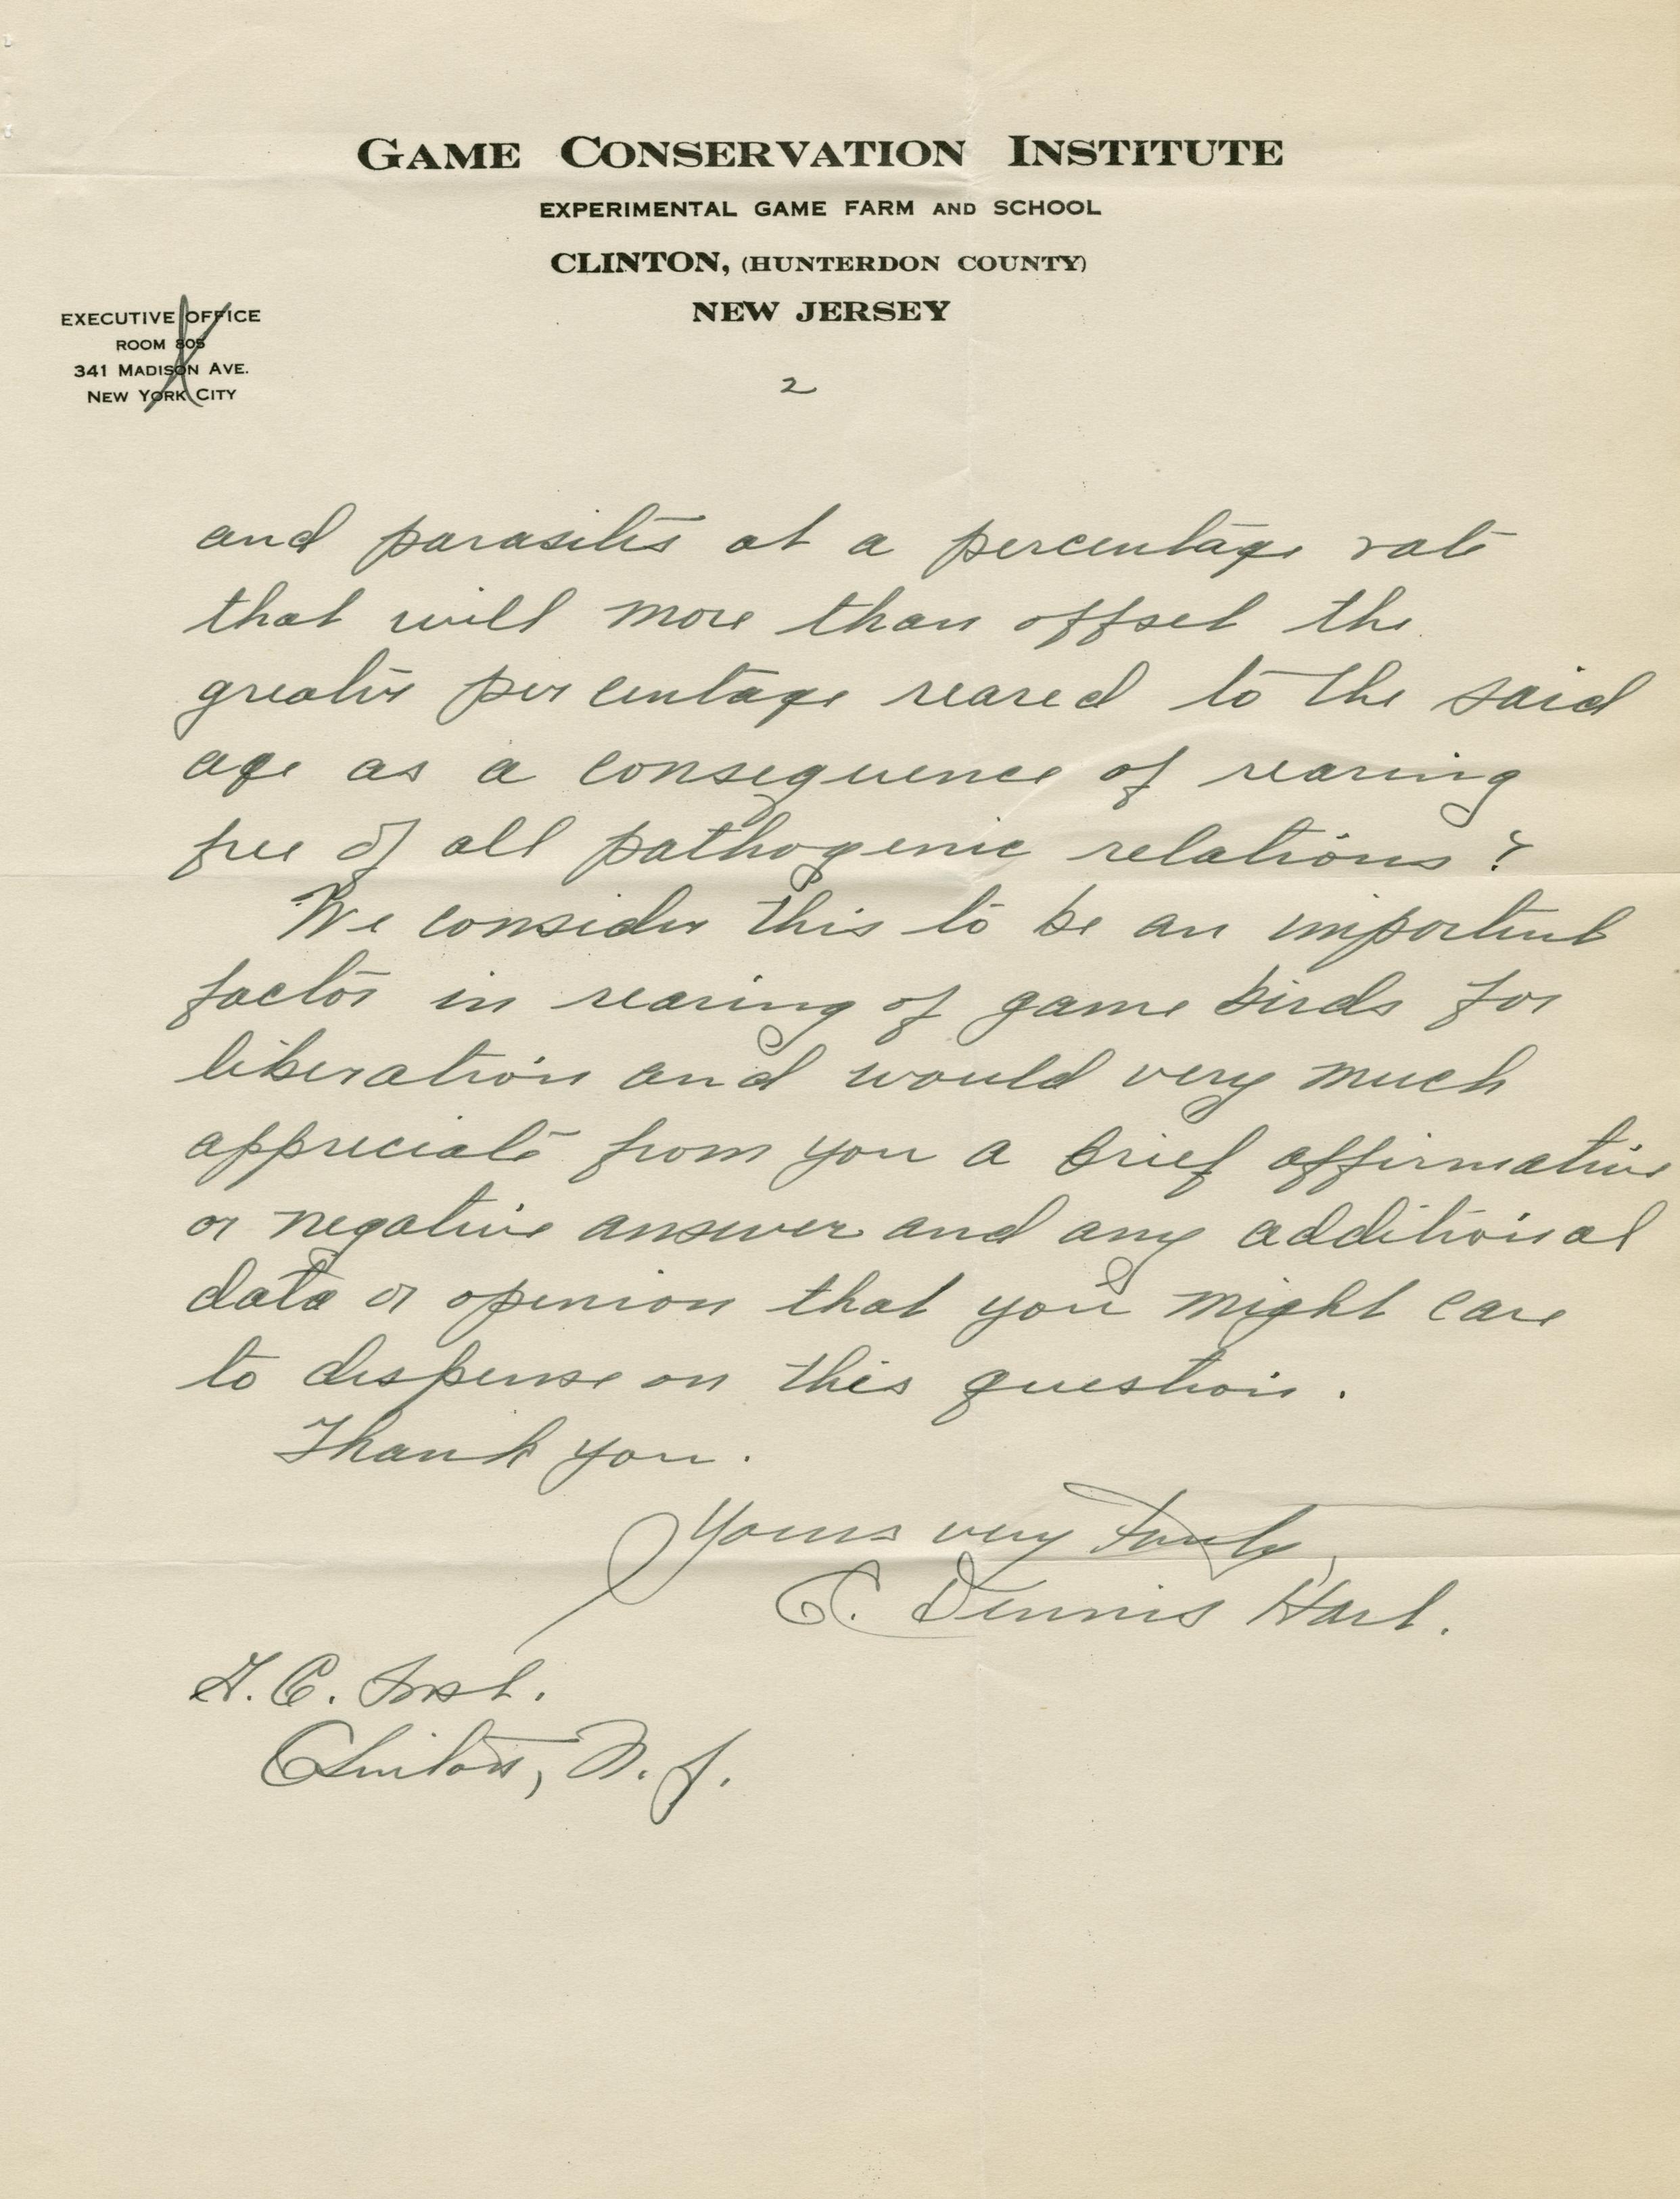 GAME CONSERVATION INSTITUTE
EXPERIMENTAL GAME FARM AND SCHOOL
CLINTON, (HUNTERDON COUNTY)
NEW JERSEY
EXECUTIVE OFFICE
ROOM 805
341 MADISON AVE.
NEW YORK CITY
2
and parasites at a percentage rate
that will more than offset the
greater percentage reared to the said
age as a consequence of rearing
free of all pathogenic relations?
We consider this to be an important
factor in rearing of game birds for
liberation and would very much
appreciate from you a brief affirmative
or negative answer and any additional
data or opinion that you might care
to dispense on this question.
Thank you.
Yours very truly,
C. Dennis Hart.
G. C. Inst.
Clinton, N. J.